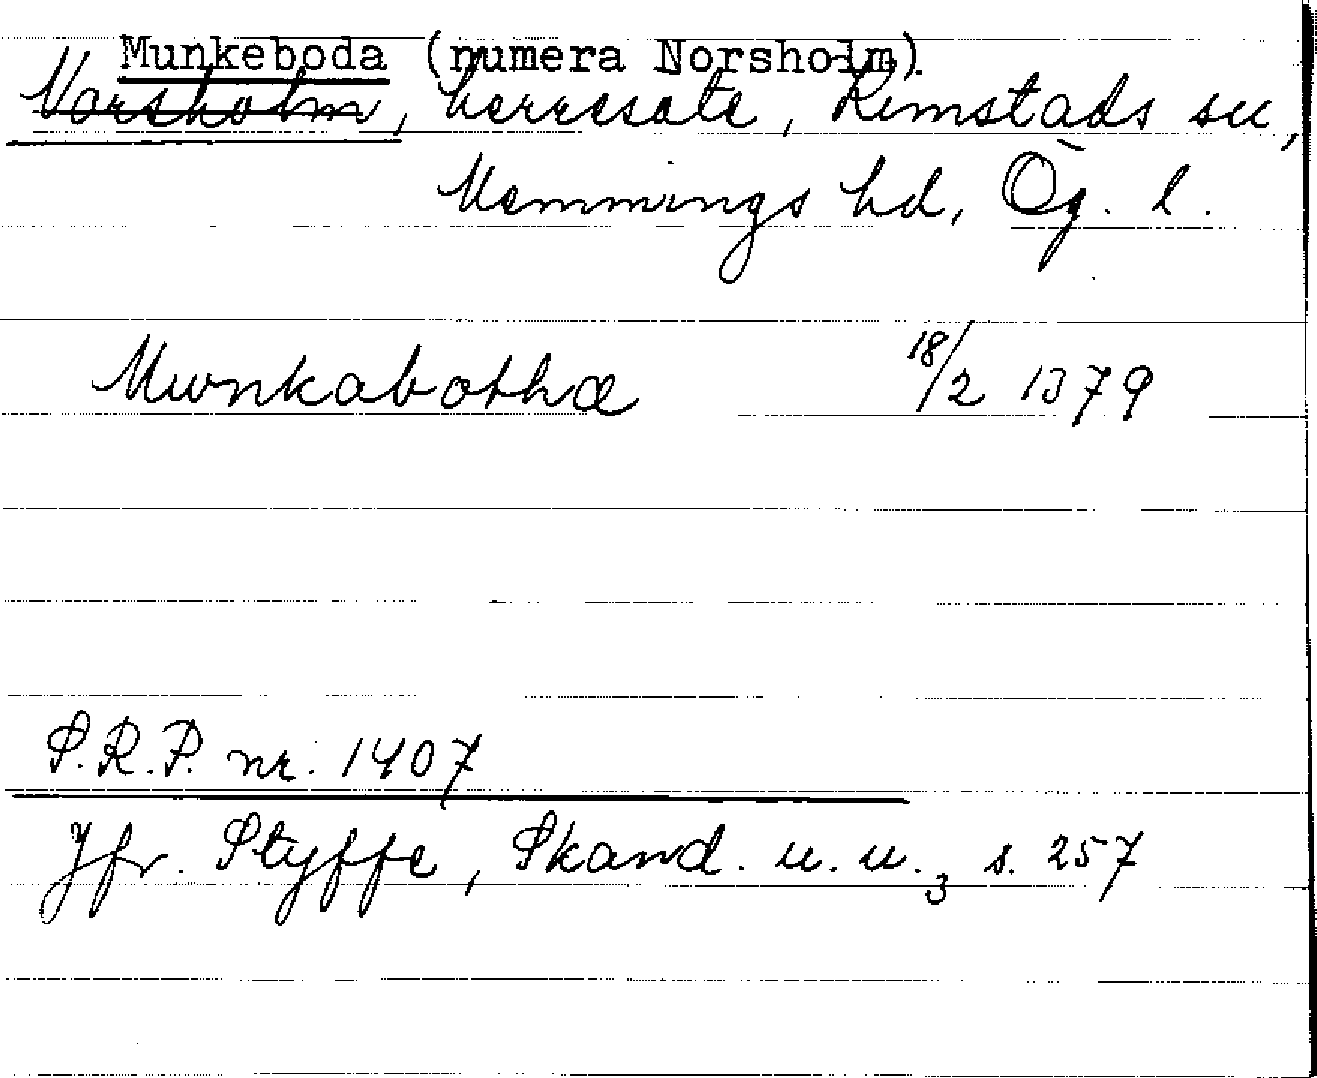 Munkeboda (numera Norsholm).
Norsholm, herresäte, Kimstads sn,
Memmings hd, Ög. l.
Munkabothæ 18/2 1379
S.R.P. nr. 1407
Jfr. Styffe, Skand. u. u. 3 s. 257